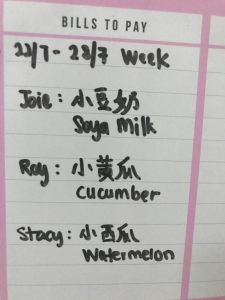 BILLS TO PAY
22/7 - 28/7 Week
Joie : 小豆奶
Soya Milk
Ray : 小黄瓜
cucumber
Stacy : 小西瓜
Watermelon